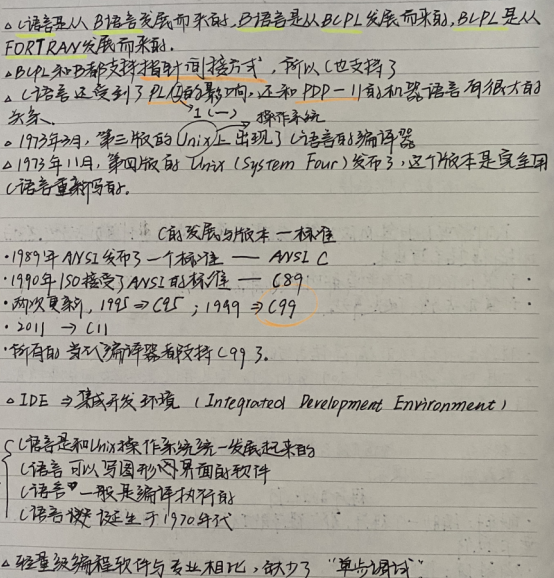 △ C语言是从B语言发展而来的，B语言是从BCPL发展而来的，BLPL是从
FORTRAN发展而来的.
△ BCPL和B都支持指针间接方式，所以C也支持了
△ C语言还受到了PL/1的影响，还和PDP-11的机器语言有很大的
关系.
1（一） 操作系统
△ 1973年3月，第三版的Unix上出现了C语言的编译器
△ 1973年11月，第四版的Unix（System Four）发布了，这个版本是完全用
C语言重新写的.
C的发展与版本—标准
·1989年ANSI发布了一个标准 — ANSI C
·1990年ISO接受了ANSI的标准 — C89
·两次更新，1995⇒C95；1999⇒C99
·2011 → C11
·所有的当代编译器都支持C99了.
△ IDE ⇒ 集成开发环境（Integrated Development Environment）
C语言是和Unix操作系统统一发展起来的
C语言可以写图形界面的软件
C语言一般是编译执行的
C语言诞生于1970年代
△ 轻量级编程软件与专业相比，缺少了“单点调试”